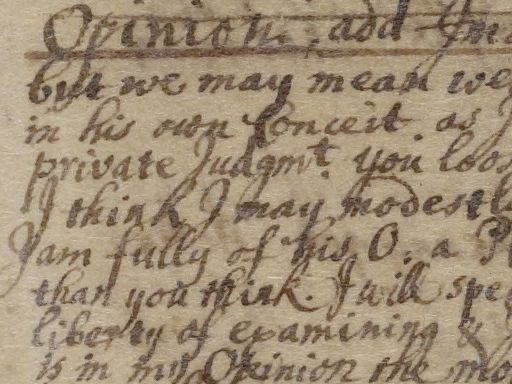 Opinion. add
but we may mean we
in his own Conceit. as
private Judgmt. you loos
I think I may modestl
I am fully of his O: a
than you think. I will spe
liberty of examining &
is in my Opinion the mo